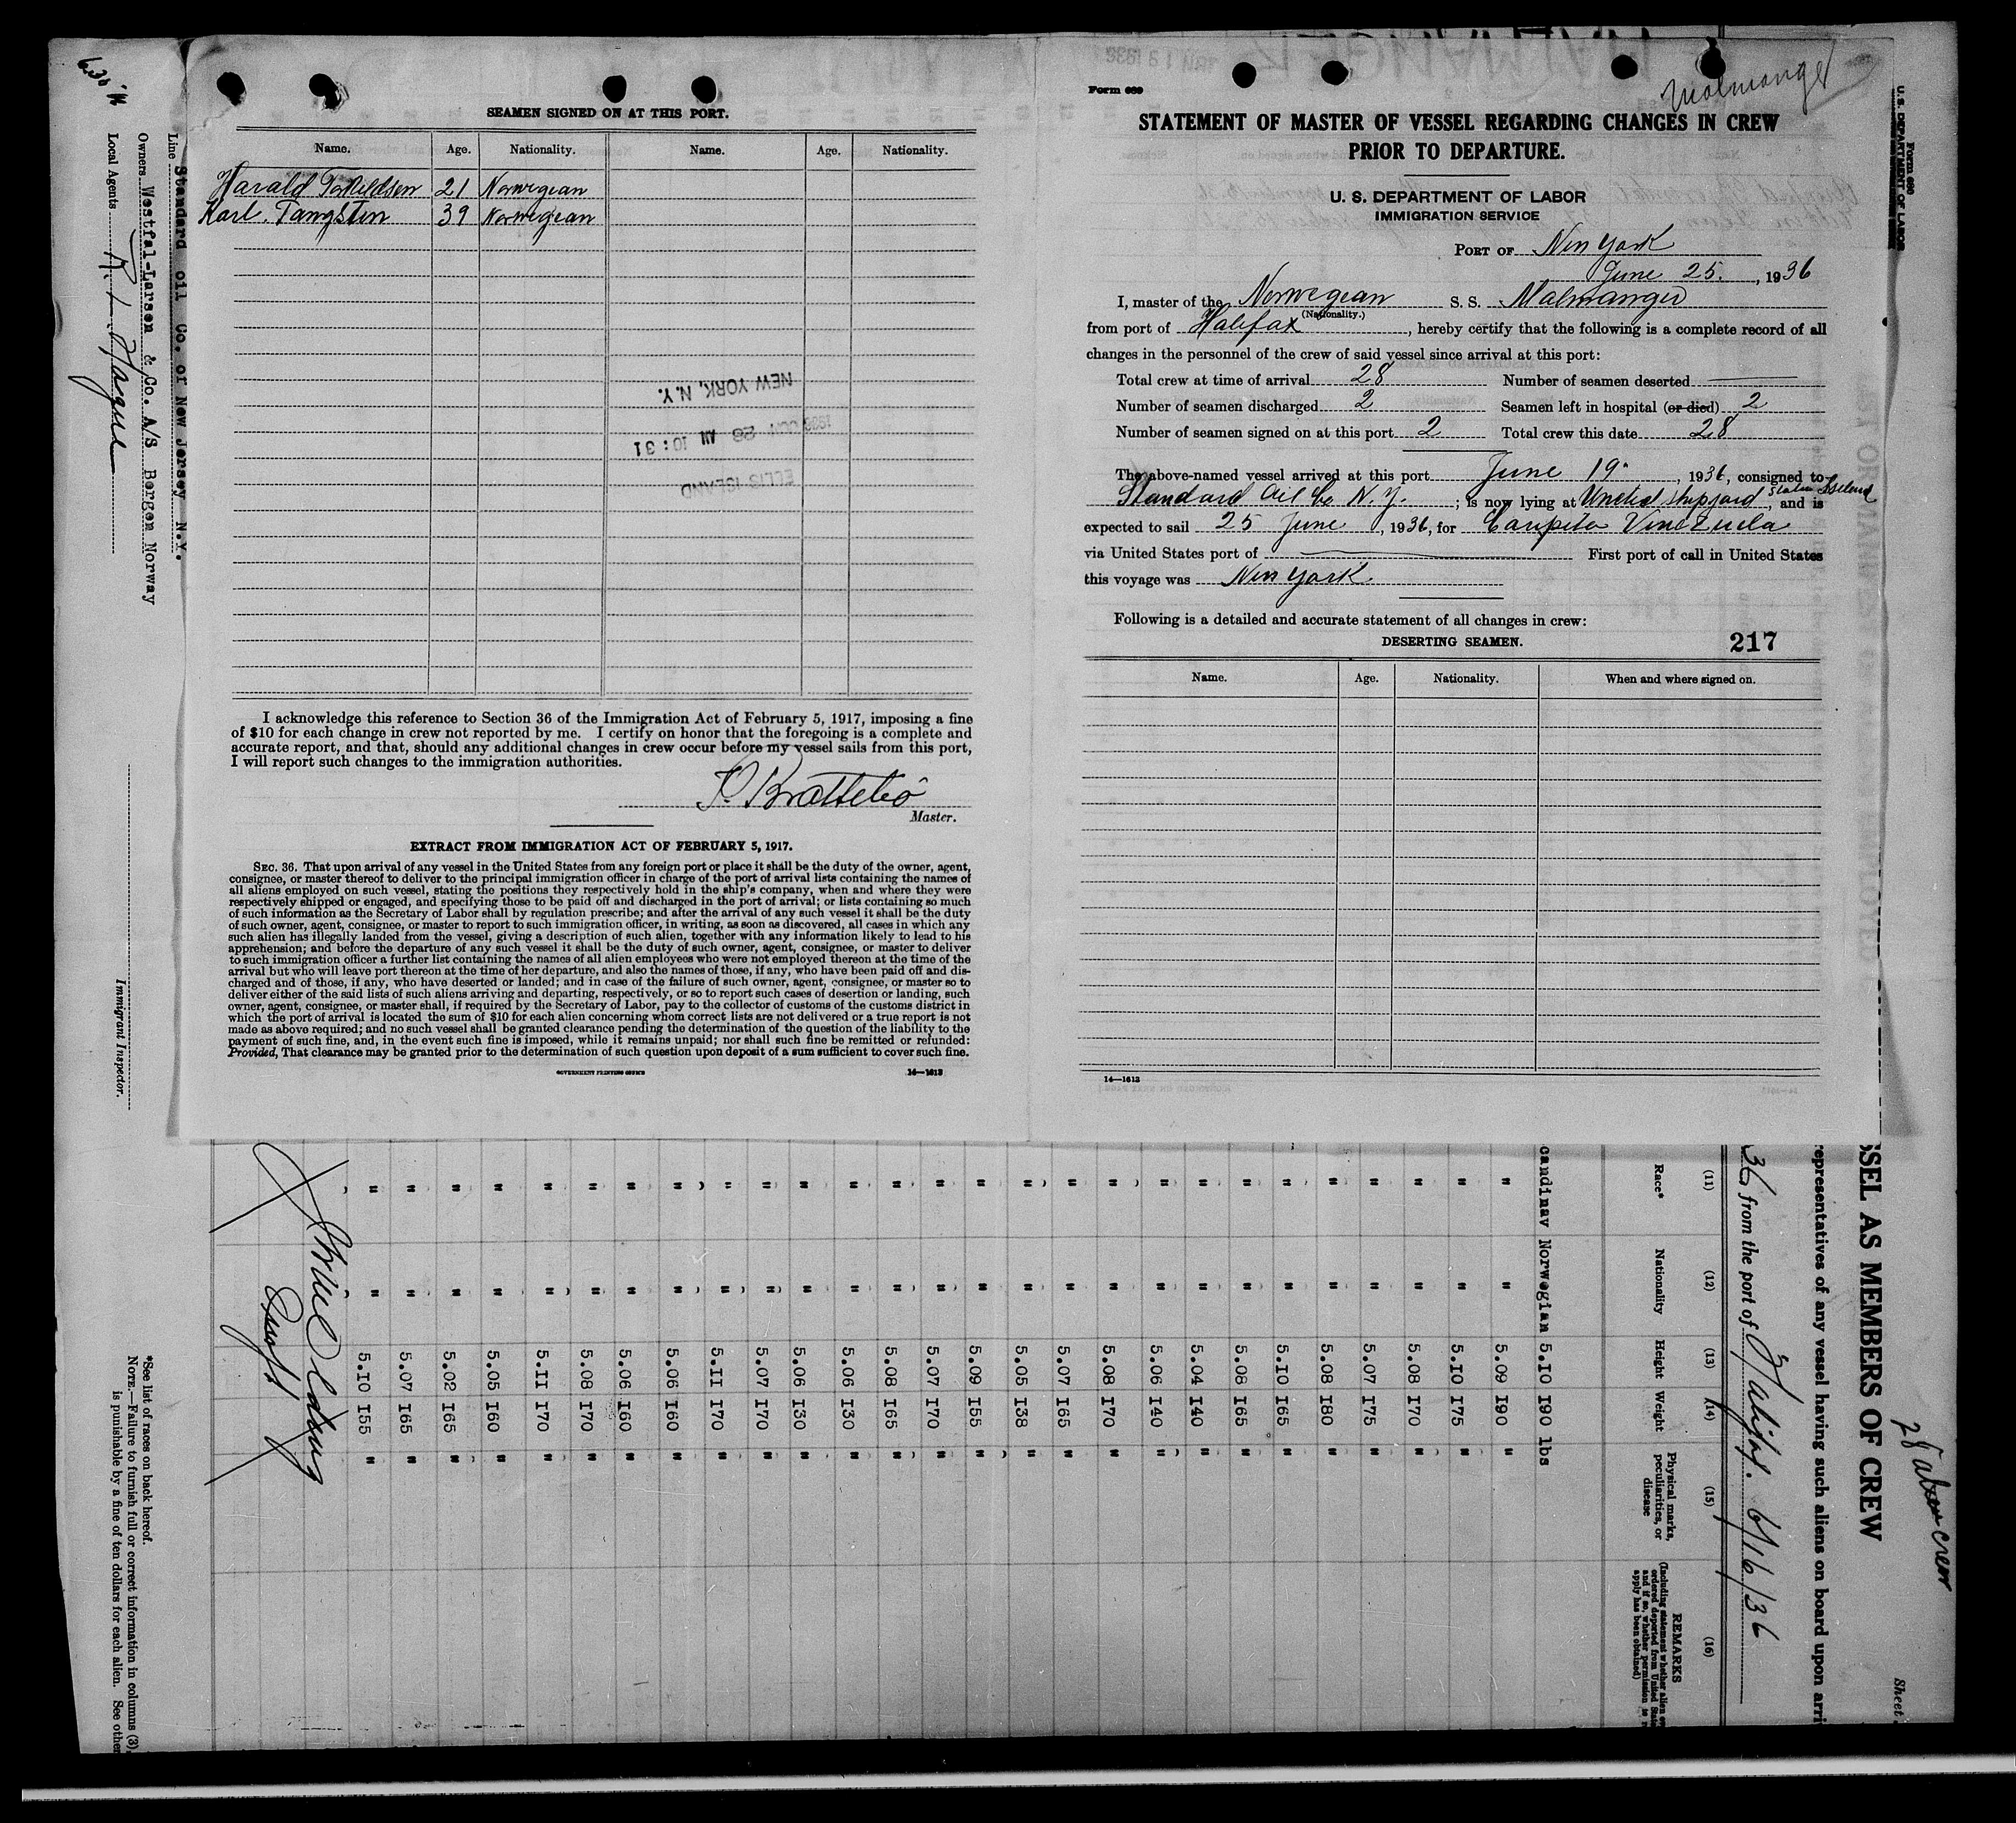 SEAMEN SIGNED ON AT THIS PORT.
Name. Age. Nationality. Name. Age. Nationality.
Harald Torkildsen 21 Norwegian
Karl Tangsten 39 Norwegian
NEW YORK, N.Y.
28 AM 10:31
ELLIS ISLAND
I acknowledge this reference to Section 36 of the Immigration Act of February 5, 1917, imposing a fine
of $10 for each change in crew not reported by me. I certify on honor that the foregoing is a complete and
accurate report, and that, should any additional changes in crew occur before my vessel sails from this port,
I will report such changes to the immigration authorities.
Brattebö
Master.
EXTRACT FROM IMMIGRATION ACT OF FEBRUARY 5, 1917.
SEC. 36. That upon arrival of any vessel in the United States from any foreign port or place it shall be the duty of the owner, agent,
consignee, or master thereof to deliver to the principal immigration officer in charge of the port of arrival lists containing the names of
all aliens employed on such vessel, stating the positions they respectively hold in the ship's company, when and where they were
respectively shipped or engaged, and specifying those to be paid off and discharged in the port of arrival; or lists containing so much
of such information as the Secretary of Labor shall by regulation prescribe; and after the arrival of any such vessel it shall be the duty
of such owner, agent, consignee, or master to report to such immigration officer, in writing, as soon as discovered, all cases in which any
such alien has illegally landed from the vessel, giving a description of such alien, together with any information likely to lead to his
apprehension; and before the departure of any such vessel it shall be the duty of such owner, agent, consignee, or master to deliver
to such immigration officer a further list containing the names of all alien employees who were not employed thereon at the time of the
arrival but who will leave port thereon at the time of her departure, and also the names of those, if any, who have been paid off and dis-
charged and of those, if any, who have deserted or landed; and in case of the failure of such owner, agent, consignee, or master so to
deliver either of the said lists of such aliens arriving and departing, respectively, or so to report such cases of desertion or landing, such
owner, agent, consignee, or master shall, if required by the Secretary of Labor, pay to the collector of customs of the customs district in
which the port of arrival is located the sum of $10 for each alien concerning whom correct lists are not delivered or a true report is not
made as above required; and no such vessel shall be granted clearance pending the determination of the question of the liability to the
payment of such fine, and, in the event such fine is imposed, while it remains unpaid; nor shall such fine be remitted or refunded:
Provided, That clearance may be granted prior to the determination of such question upon deposit of a sum sufficient to cover such fine.
GOVERNMENT PRINTING OFFICE 14—1613
Malmanger
Form 689
STATEMENT OF MASTER OF VESSEL REGARDING CHANGES IN CREW
PRIOR TO DEPARTURE.
U. S. DEPARTMENT OF LABOR
IMMIGRATION SERVICE
PORT OF New York
June 25, 1936
I, master of the Norwegian S. S. Malmanger
(Nationality.)
from port of Halifax, hereby certify that the following is a complete record of all
changes in the personnel of the crew of said vessel since arrival at this port:
Total crew at time of arrival 28 Number of seamen deserted —
Number of seamen discharged 2 Seamen left in hospital (or died) 2
Number of seamen signed on at this port 2 Total crew this date 28
The above-named vessel arrived at this port June 19, 1936, consigned to
Standard Oil Co N.Y.; is now lying at United Shipyard Staten Island, and is
expected to sail 25 June, 1936, for Caripito Venezuela
via United States port of — First port of call in United States
this voyage was New York
Following is a detailed and accurate statement of all changes in crew:
DESERTING SEAMEN. 217
Name. Age. Nationality. When and where signed on.
14—1613
Form 689
U. S. DEPARTMENT OF LABOR
28 alien crew
Sheet
SSEL AS MEMBERS OF CREW
representatives of any vessel having such aliens on board upon arri
36 from the port of Halifax. 6/16/36
(11) (12) (13) (14) (15) (16)
Race* Nationality Height Weight Physical marks, peculiarities, or disease REMARKS
candinav Norwegian 5.10 190 lbs
" " 5.09 I90 "
" " 5.10 I75 "
" " 5.08 I70 "
" " 5.07 I75 "
" " 5.08 I80 "
" " 5.10 I65 "
" " 5.08 I65 "
" " 5.04 I40 "
" " 5.06 I40 "
" " 5.08 I70 "
" " 5.07 I65 "
" " 5.05 I38 "
" " 5.09 I55 "
" " 5.07 I70 "
" " 5.08 I65 "
" " 5.06 I30 "
" " 5.06 I30 "
" " 5.07 I70 "
" " 5.II I70 "
" " 5.06 I60 "
" " 5.06 I60 "
" " 5.08 I70 "
" " 5.II I70 "
" " 5.05 I60 "
" " 5.02 I65 "
" " 5.07 I65 "
" " 5.I0 I55 "
Line Standard oil Co. of New Jersey N.Y.
Owners Westfal-Larsen & Co. A/S Bergen Norway
Local Agents
Immigrant Inspector.
*See list of races on back hereof.
NOTE.—Failure to furnish full or correct information in columns (3),
is punishable by a fine of ten dollars for each alien. See other